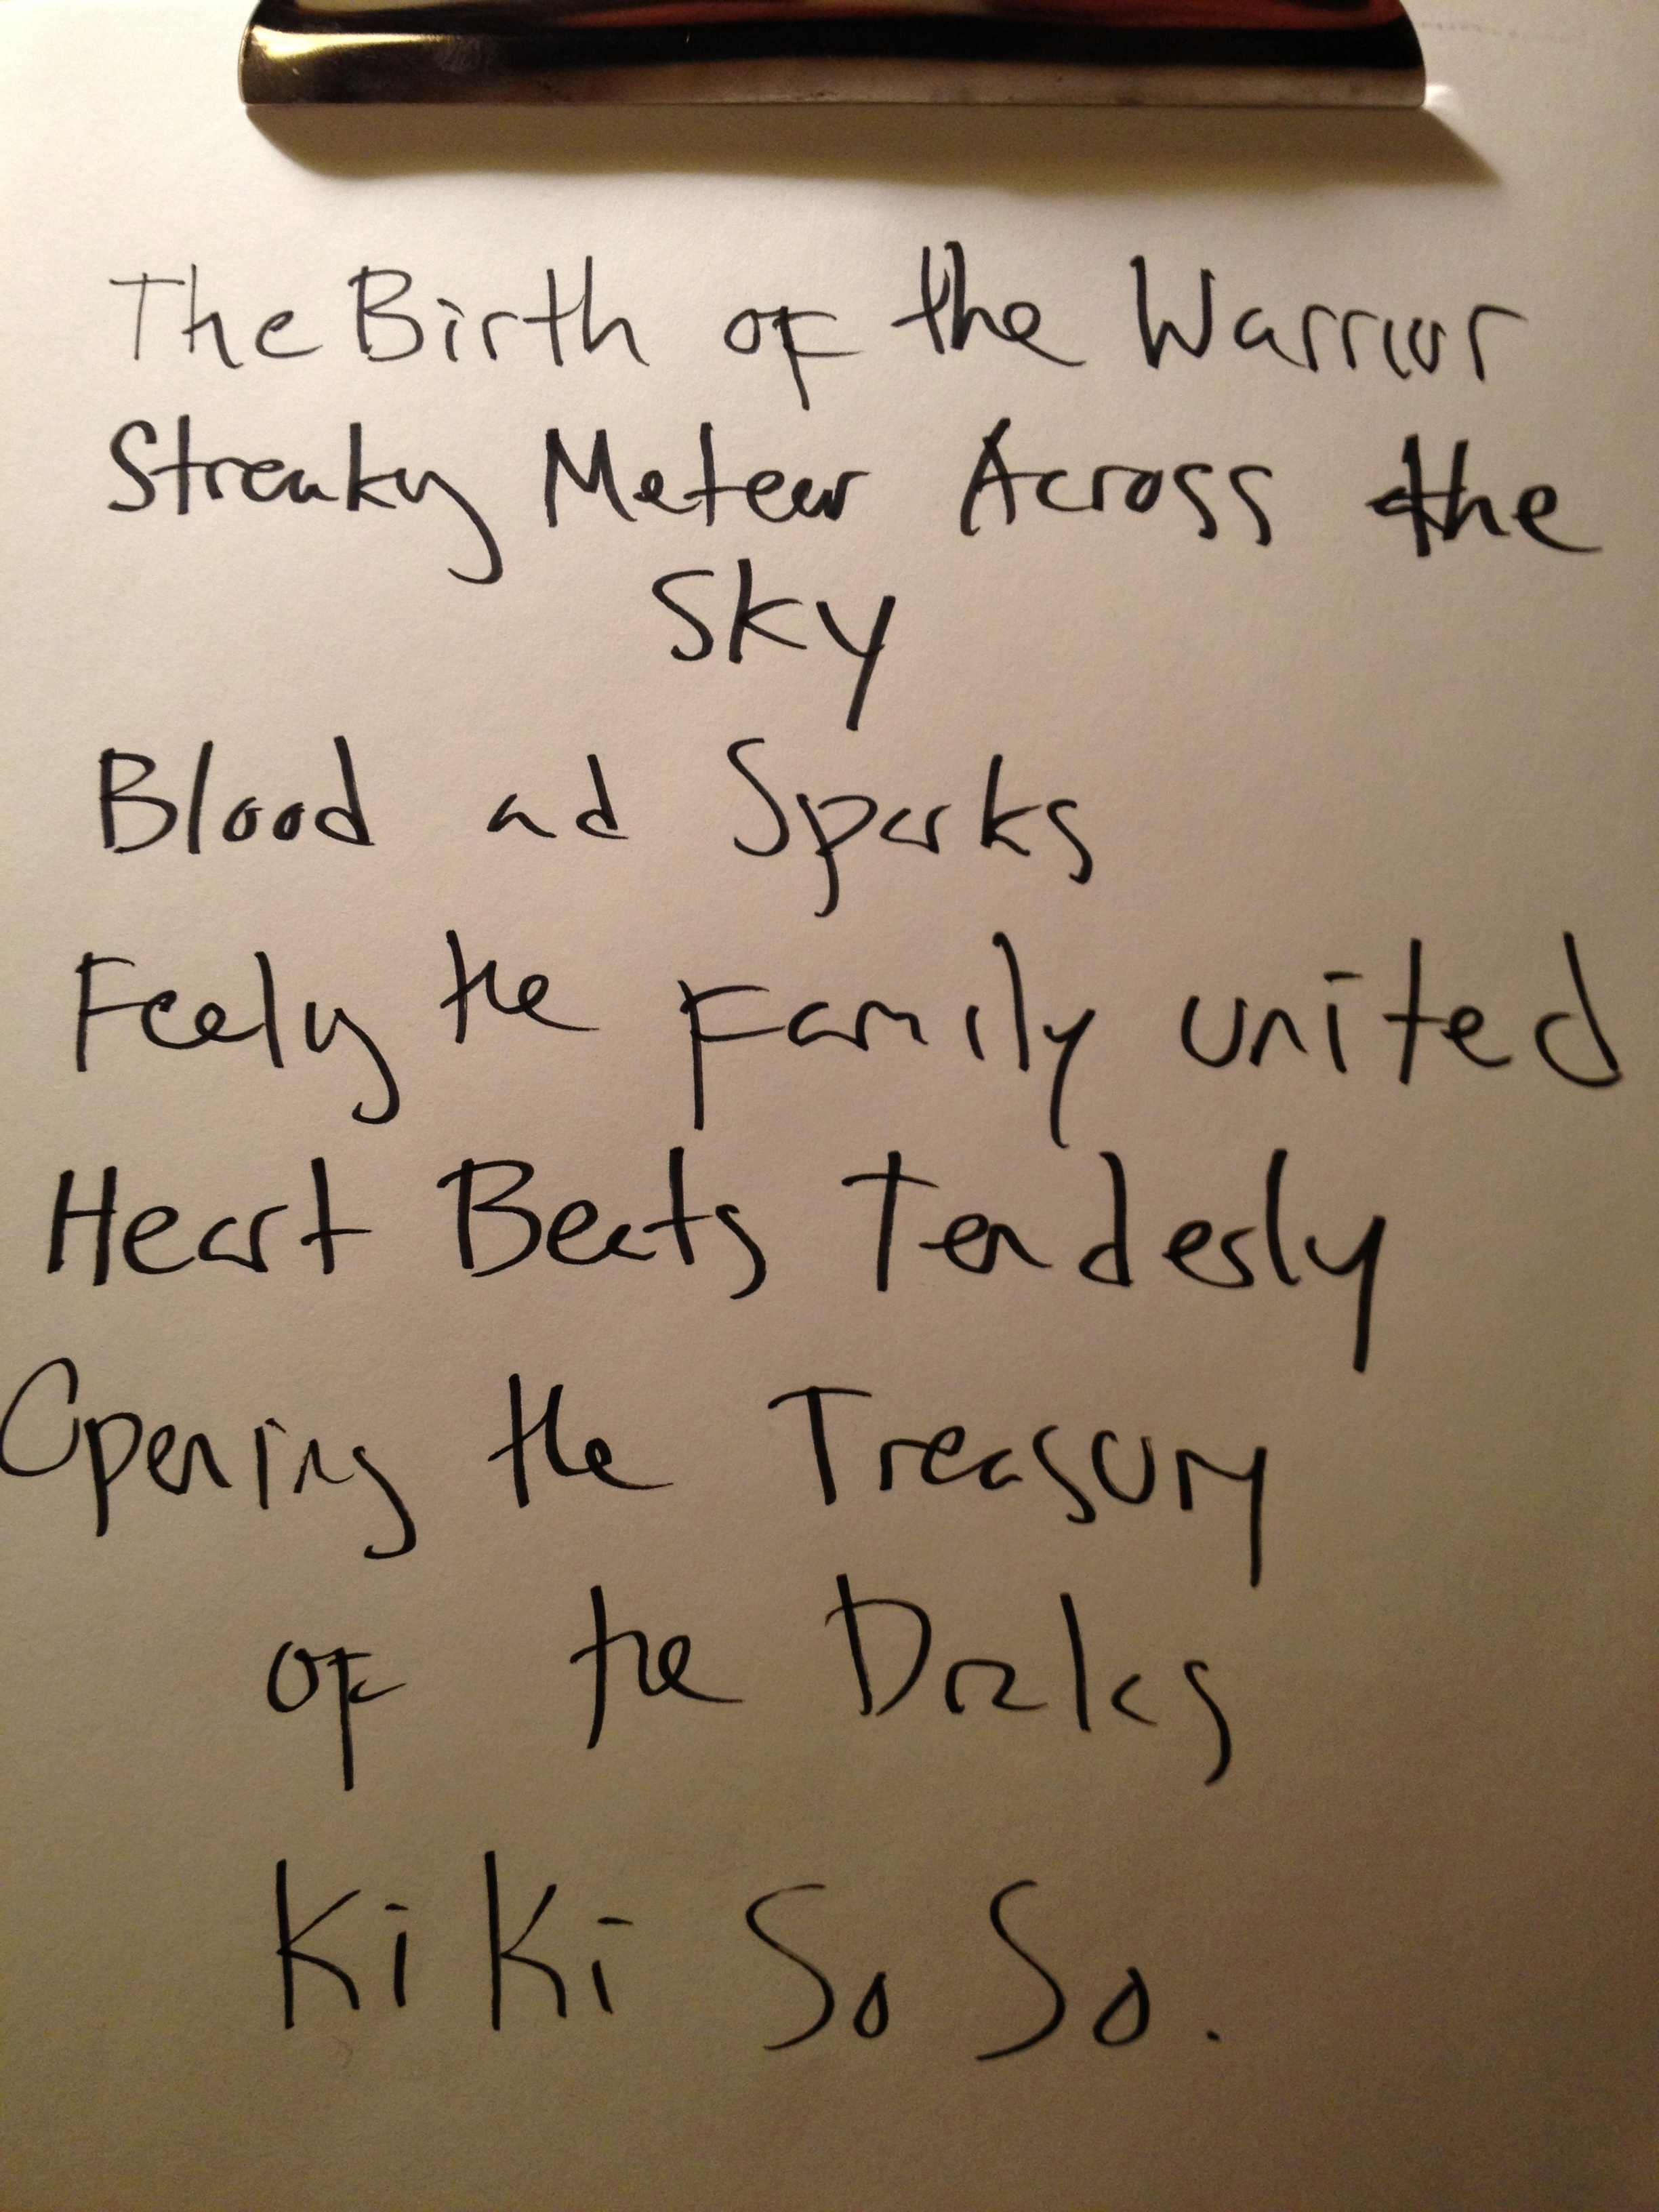 The Birth of the Warrior
Streaky Meteor Across the
Sky
Blood ad Sparks
Feely the Family united
Heart Beats Tenderly
Opening the Treasury
of the Dralas
Ki Ki So So.